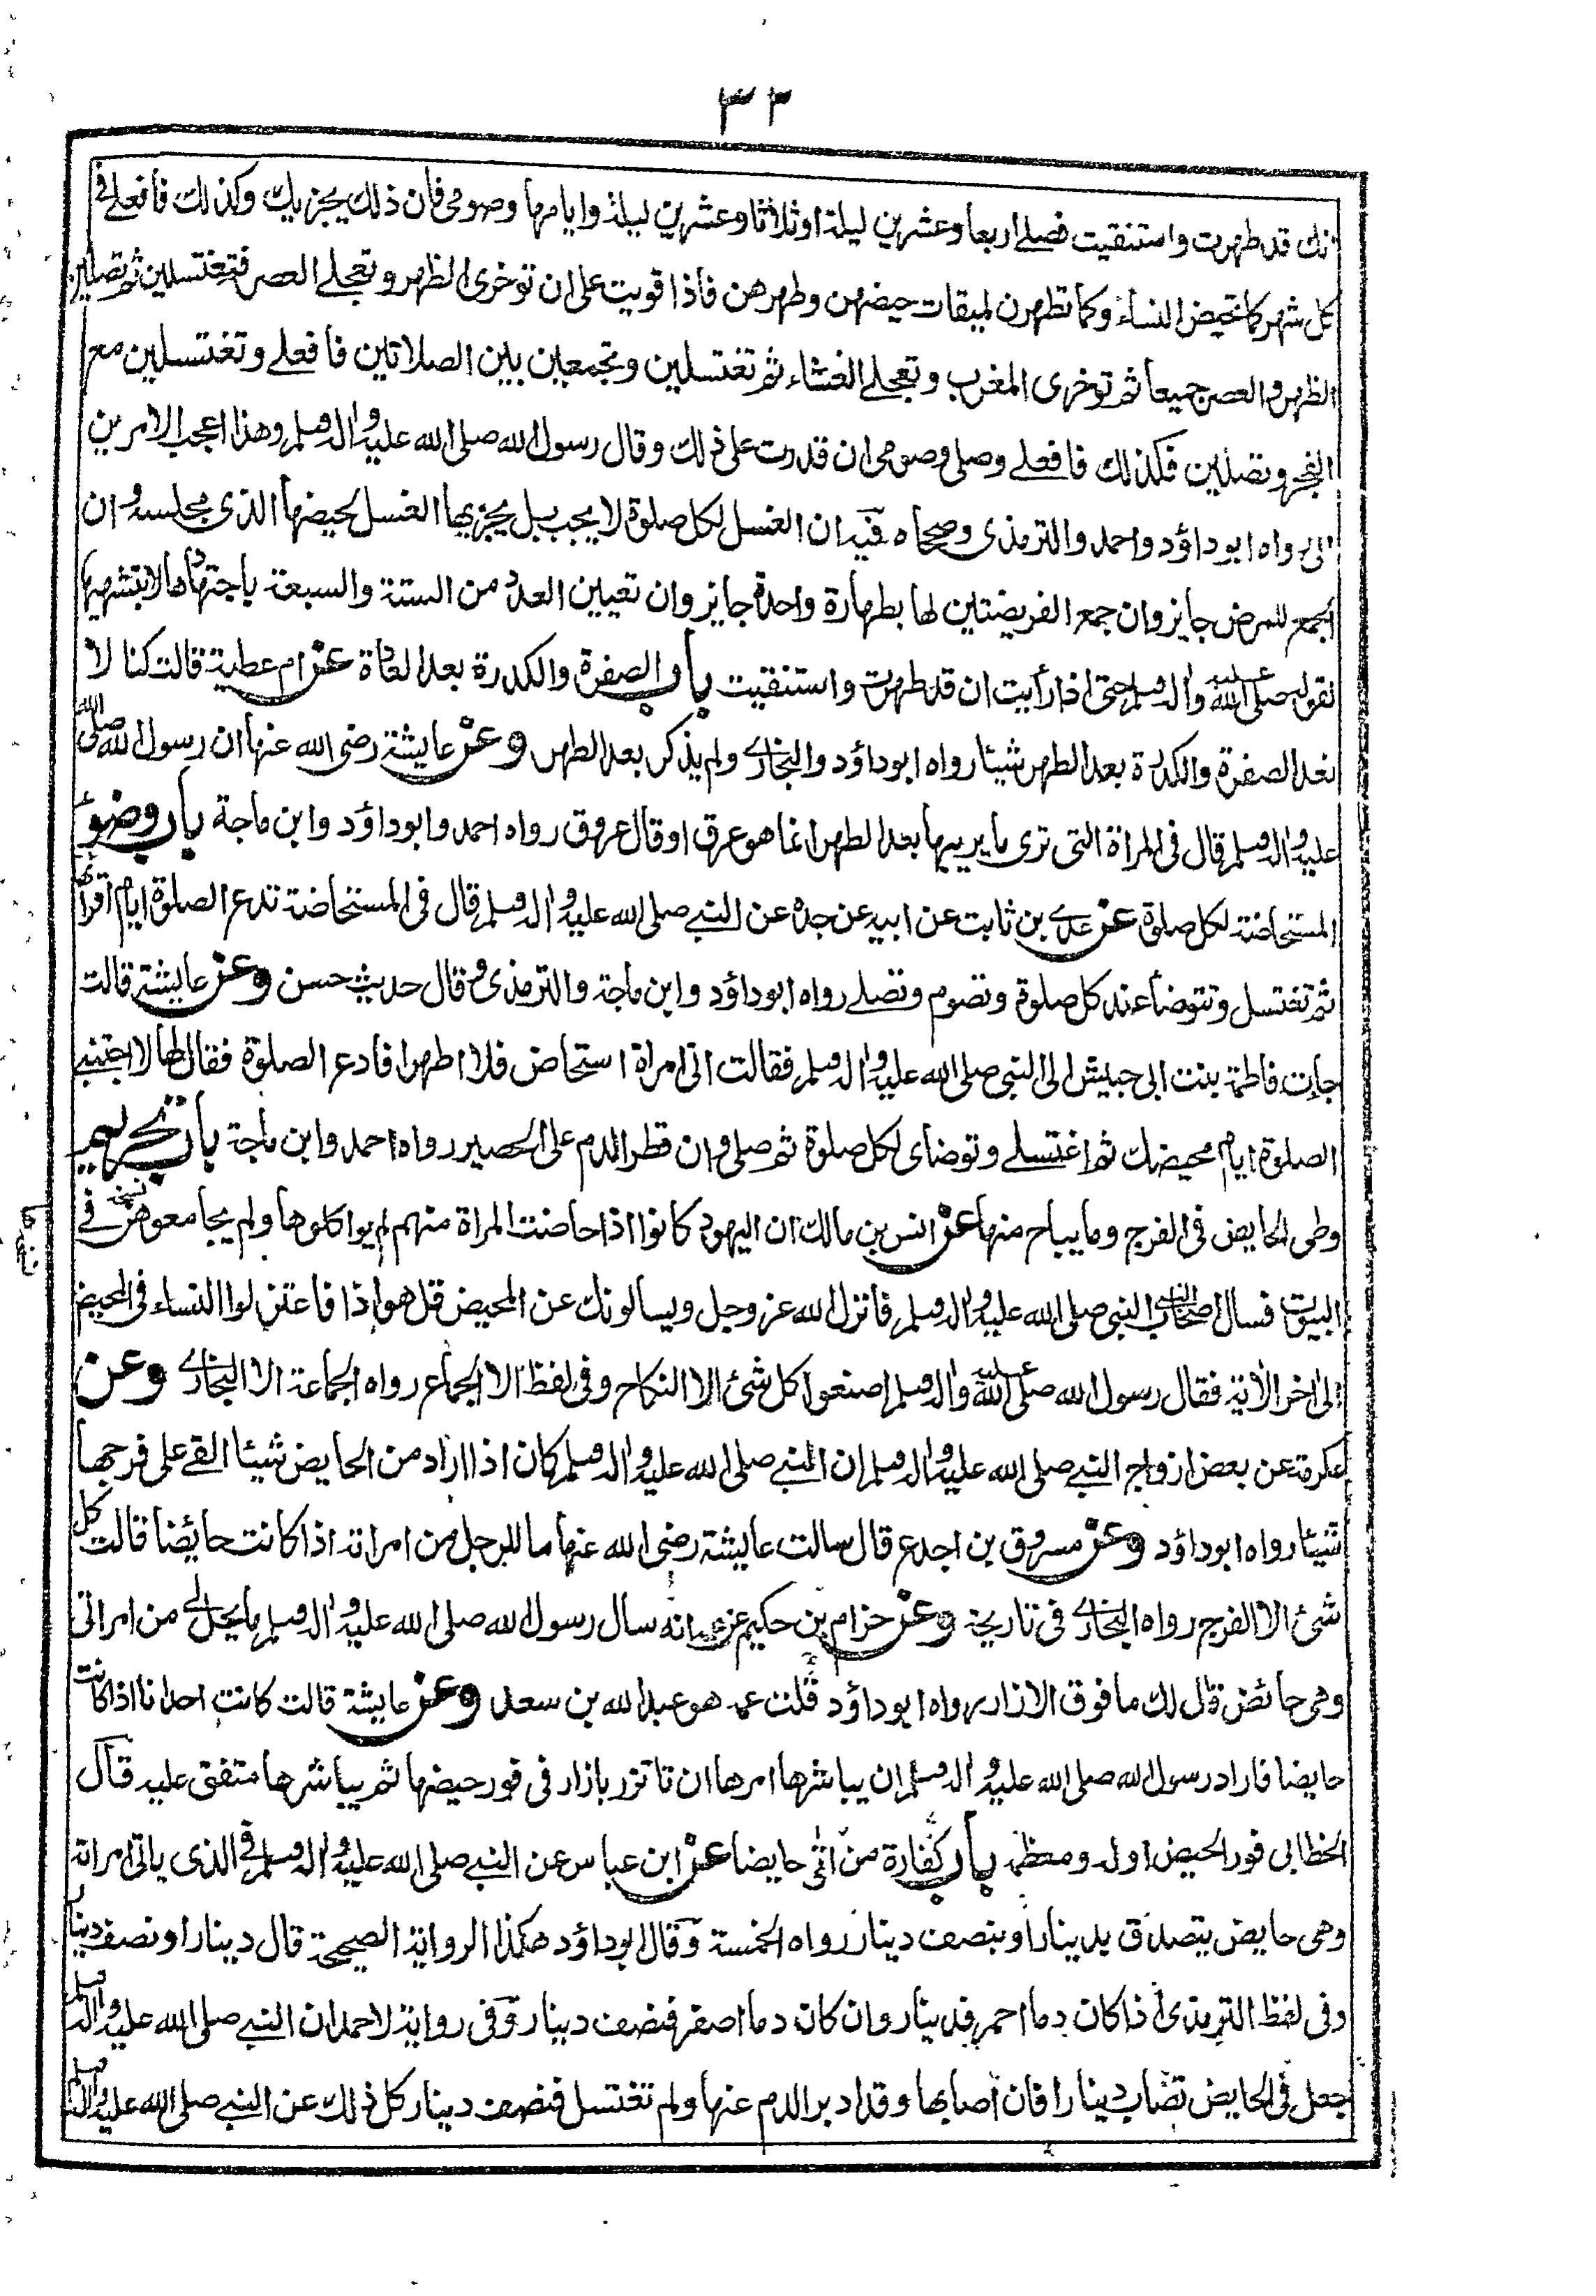 ٣٣
انك قد طهرت واستنقيت فصلى اربعا وعشرين ليلة او ثلاثا وعشرين ليلة وايامها وصومى فان ذلك يجزيك وكذلك فافعلى فى
كل شهر كما تحيض النساء وكما تطهرن لميقات حيضهن وطهرهن فاذا قويت على ان توخرى الظهر وتعجلى العصر فتغتسلين ثم تصلين
الظهر والعصر جميعا ثم توخرى المغرب وتعجلى العشاء ثم تغتسلين وتجمعين بين الصلاتين فافعلى وتغتسلين مع
الفجر وتصلين فكذلك فافعلى وصلى وصومى ان قدرت على ذلك وقال رسول الله صلى الله عليه واله وسلم وهذا اعجب الامرين
الى رواه ابو داؤد واحمد والترمذى وصححاه فيه ان الغسل لكل صلوة لا يجب بل يجزيها الغسل لحيضها الذى مجلسه وان
الجمع للمرض جايز وان جمع الفريضتين لها بطهارة واحدة جايز وان تعيين العدد من الستة والسبعة باجتهادها لا بتشهيها
لقوله صلى الله عليه واله وسلم حتى اذا رأيت ان قد طهرت واستنقيت باب الصفرة والكدرة بعد العادة عن ام عطية قالت كنا لا
نعد الصفرة والكدرة بعد الطهر شيئا رواه ابو داؤد والبخارى ولم يذكر بعد الطهر وعن عايشة رضى الله عنها ان رسول الله صلى الله
عليه واله وسلم قال فى المراة التى ترى ما يريبها بعد الطهر انما هو عرق او قال عروق رواه احمد وابو داؤد وابن ماجة باب وضوء
المستحاضة لكل صلوة عن عدى بن ثابت عن ابيه عن جده عن النبى صلى الله عليه واله وسلم قال فى المستحاضة تدع الصلوة ايام اقرائها
ثم تغتسل وتتوضأ عند كل صلوة وتصوم وتصلى رواه ابو داؤد وابن ماجة والترمذى وقال حديث حسن وعن عايشة قالت
جاءت فاطمة بنت ابى حبيش الى النبى صلى الله عليه واله وسلم فقالت انى امراة استحاض فلا اطهر افادع الصلوة فقال لها لا اجتنبى
الصلوة ايام محيضك ثم اغتسلى وتوضاى لكل صلوة ثم صلى وان قطر الدم على الحصير رواه احمد وابن ماجة باب تحريم
وطى الحايض فى الفرج وما يباح منها عن انس بن مالك ان اليهود كانوا اذا حاضت المراة منهم لم يواكلوها ولم يجامعوهن فى
البيوت فسال اصحاب النبى صلى الله عليه واله وسلم فانزل الله عز وجل ويسالونك عن المحيض قل هو اذا فاعتزلوا النساء فى المحيض
الى اخر الاية فقال رسول الله صلى الله عليه واله وسلم اصنعوا كل شئ الا النكاح وفى لفظ الا الجماع رواه الجماعة الا البخارى وعن
عكرمة عن بعض ازواج النبى صلى الله عليه واله وسلم ان النبى صلى الله عليه واله وسلم كان اذا اراد من الحايض شيئا القى على فرجها
شيئا رواه ابو داؤد وعن مسروق بن اجدع قال سالت عايشة رضى الله عنها ما للرجل من امراته اذا كانت حائضا قالت كل
شئ الا الفرج رواه البخارى فى تاريخه وعن حزام بن حكيم عن عمه انه سال رسول الله صلى الله عليه واله وسلم ما يحل لى من امراتى
وهى حائض قال لك ما فوق الازار رواه ابو داؤد قلت عمه هو عبد الله بن سعد وعن عايشة قالت كانت احدانا اذا كانت
حايضا فاراد رسول الله صلى الله عليه واله وسلم ان يباشرها امرها ان تاتزر بازار فى فور حيضها ثم يباشرها متفق عليه قال
الخطابى فور الحيض اوله ومعظمه باب كفارة من اتى حايضا عن ابن عباس عن النبى صلى الله عليه واله وسلم فى الذى ياتى امراته
وهى حايض يتصدق بدينار او بنصف دينار رواه الخمسة وقال ابو داؤد هكذا الرواية الصحيحة قال دينار او نصف دينار
وفى لفظ الترمذى اذا كان دما احمر فدينار وان كان دما اصفر فنصف دينار وفى رواية لاحمد ان النبى صلى الله عليه واله وسلم
جعل فى الحايض تصاب دينارا فان اصابها وقد ادبر الدم عنها ولم تغتسل فنصف دينار كل ذلك عن النبى صلى الله عليه واله وسلم